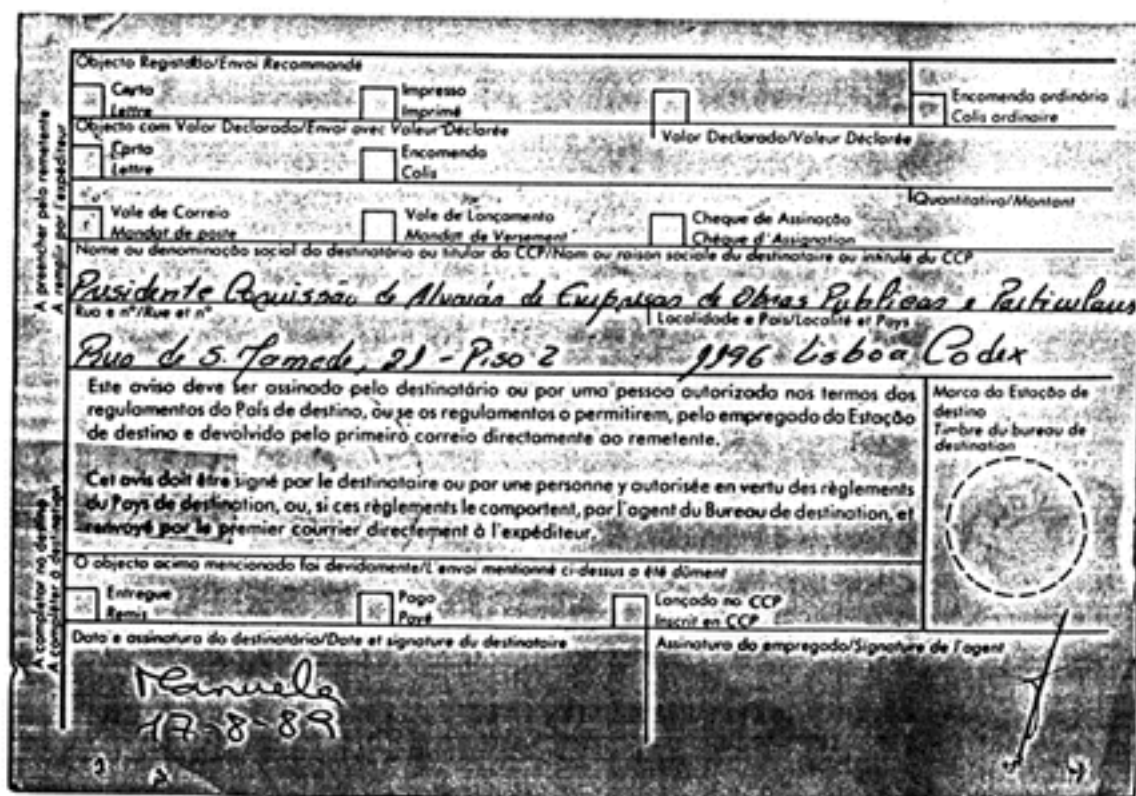 Objecto Registado/Envoi Recommandé
Carta
Lettre
Impresso
Imprimé
Encomenda ordinária
Colis ordinaire
Objecto com Valor Declarado/Envoi avec Valeur Déclarée
Valor Declarado/Valeur Déclarée
Carta
Lettre
Encomenda
Colis
Quantitativo/Montant
Vale de Correio
Mandat de poste
Vale de Lançamento
Mandat de Versement
Cheque de Assinação
Chèque d'Assignation
Nome ou denominação social do destinatário ou titular da CCP/Nom ou raison sociale du destinataire ou intitulé du CCP
Presidente Comissão de Alvarás de Empresas de Obras Publicas e Particulares
Rua e nº/Rue et nº
Localidade e País/Localité et Pays
Rua de S. Mamede, 21 - Piso 2 1196 Lisboa Codex
Este aviso deve ser assinado pelo destinatário ou por uma pessoa autorizada nos termos dos
regulamentos do País de destino, ou se os regulamentos o permitirem, pelo empregado da Estação
de destino e devolvido pelo primeiro correio directamente ao remetente.
Cet avis doit être signé par le destinataire ou par une personne y autorisée en vertu des règlements
du Pays de destination, ou, si ces règlements le comportent, par l'agent du Bureau de destination, et
renvoyé par le premier courrier directement à l'expéditeur.
Marca da Estação de
destino
Timbre du bureau de
destination
O objecto acima mencionado foi devidamente/L'envoi mentionné ci-dessus a été dûment
Entregue
Remis
Pago
Payé
Lançado no CCP
Inscrit en CCP
Data e assinatura do destinatário/Date et signature du destinataire
Assinatura do empregado/Signature de l'agent
Manuela
17-8-89
A preencher pelo remetente
A remplir par l'expéditeur
A completar no destino
A compléter à destination